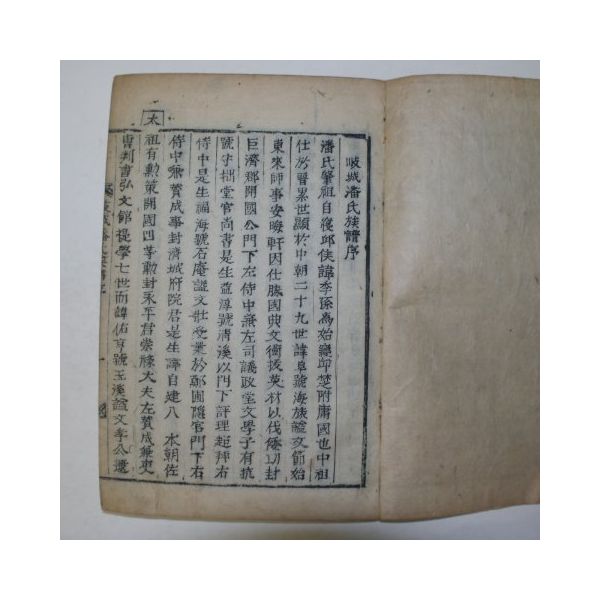 岐城潘氏族譜序
潘氏肇祖自寢邱侯諱季孫爲始寢邱楚附庸國也中祖
仕於晋累世顯於中朝二十九世諱阜號海族諡文節始
東來師事安晦軒因仕勝國典文衡拔英材以伐倭功封
巨濟郡開國公門下左侍中兼左司議政堂文學子有抗
號守拙堂官尚書是生益淳號清溪以門下評理超拜右
侍中是生福海號石庵諡文壯受業於鄭圃隱官門下右
侍中兼贊成事封濟城府院君是生諱自建入 本朝佐
太
祖有勳策開國四等勳封永平君崇祿大夫左贊成兼吏
曹判書弘文館提學七世而諱佑亨號玉溪諡文孝公選